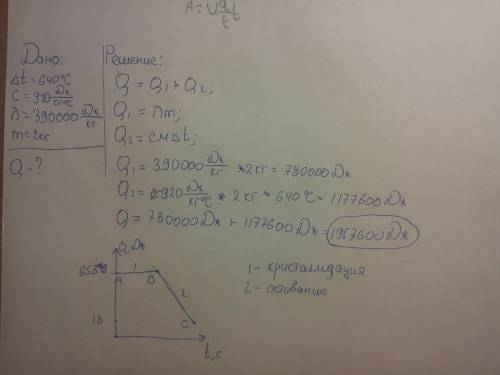 A = Uqt/t
Дано:
Δt = 640°C
C = 920 Дж/кг°C
λ = 390000 Дж/кг
m = 2кг
Q - ?
Решение:
Q = Q1 + Q2;
Q1 = λm;
Q2 = cmΔt;
Q1 = 390000 Дж/кг * 2кг = 780000 Дж
Q2 = 920 Дж/кг°C * 2 кг * 640°C = 1177600 Дж
Q = 780000 Дж + 1177600 Дж = 1957600 Дж
Q, Дж
658°C
A
1
B
2
18
C
t, c
1 - кристализация
2 - остывание